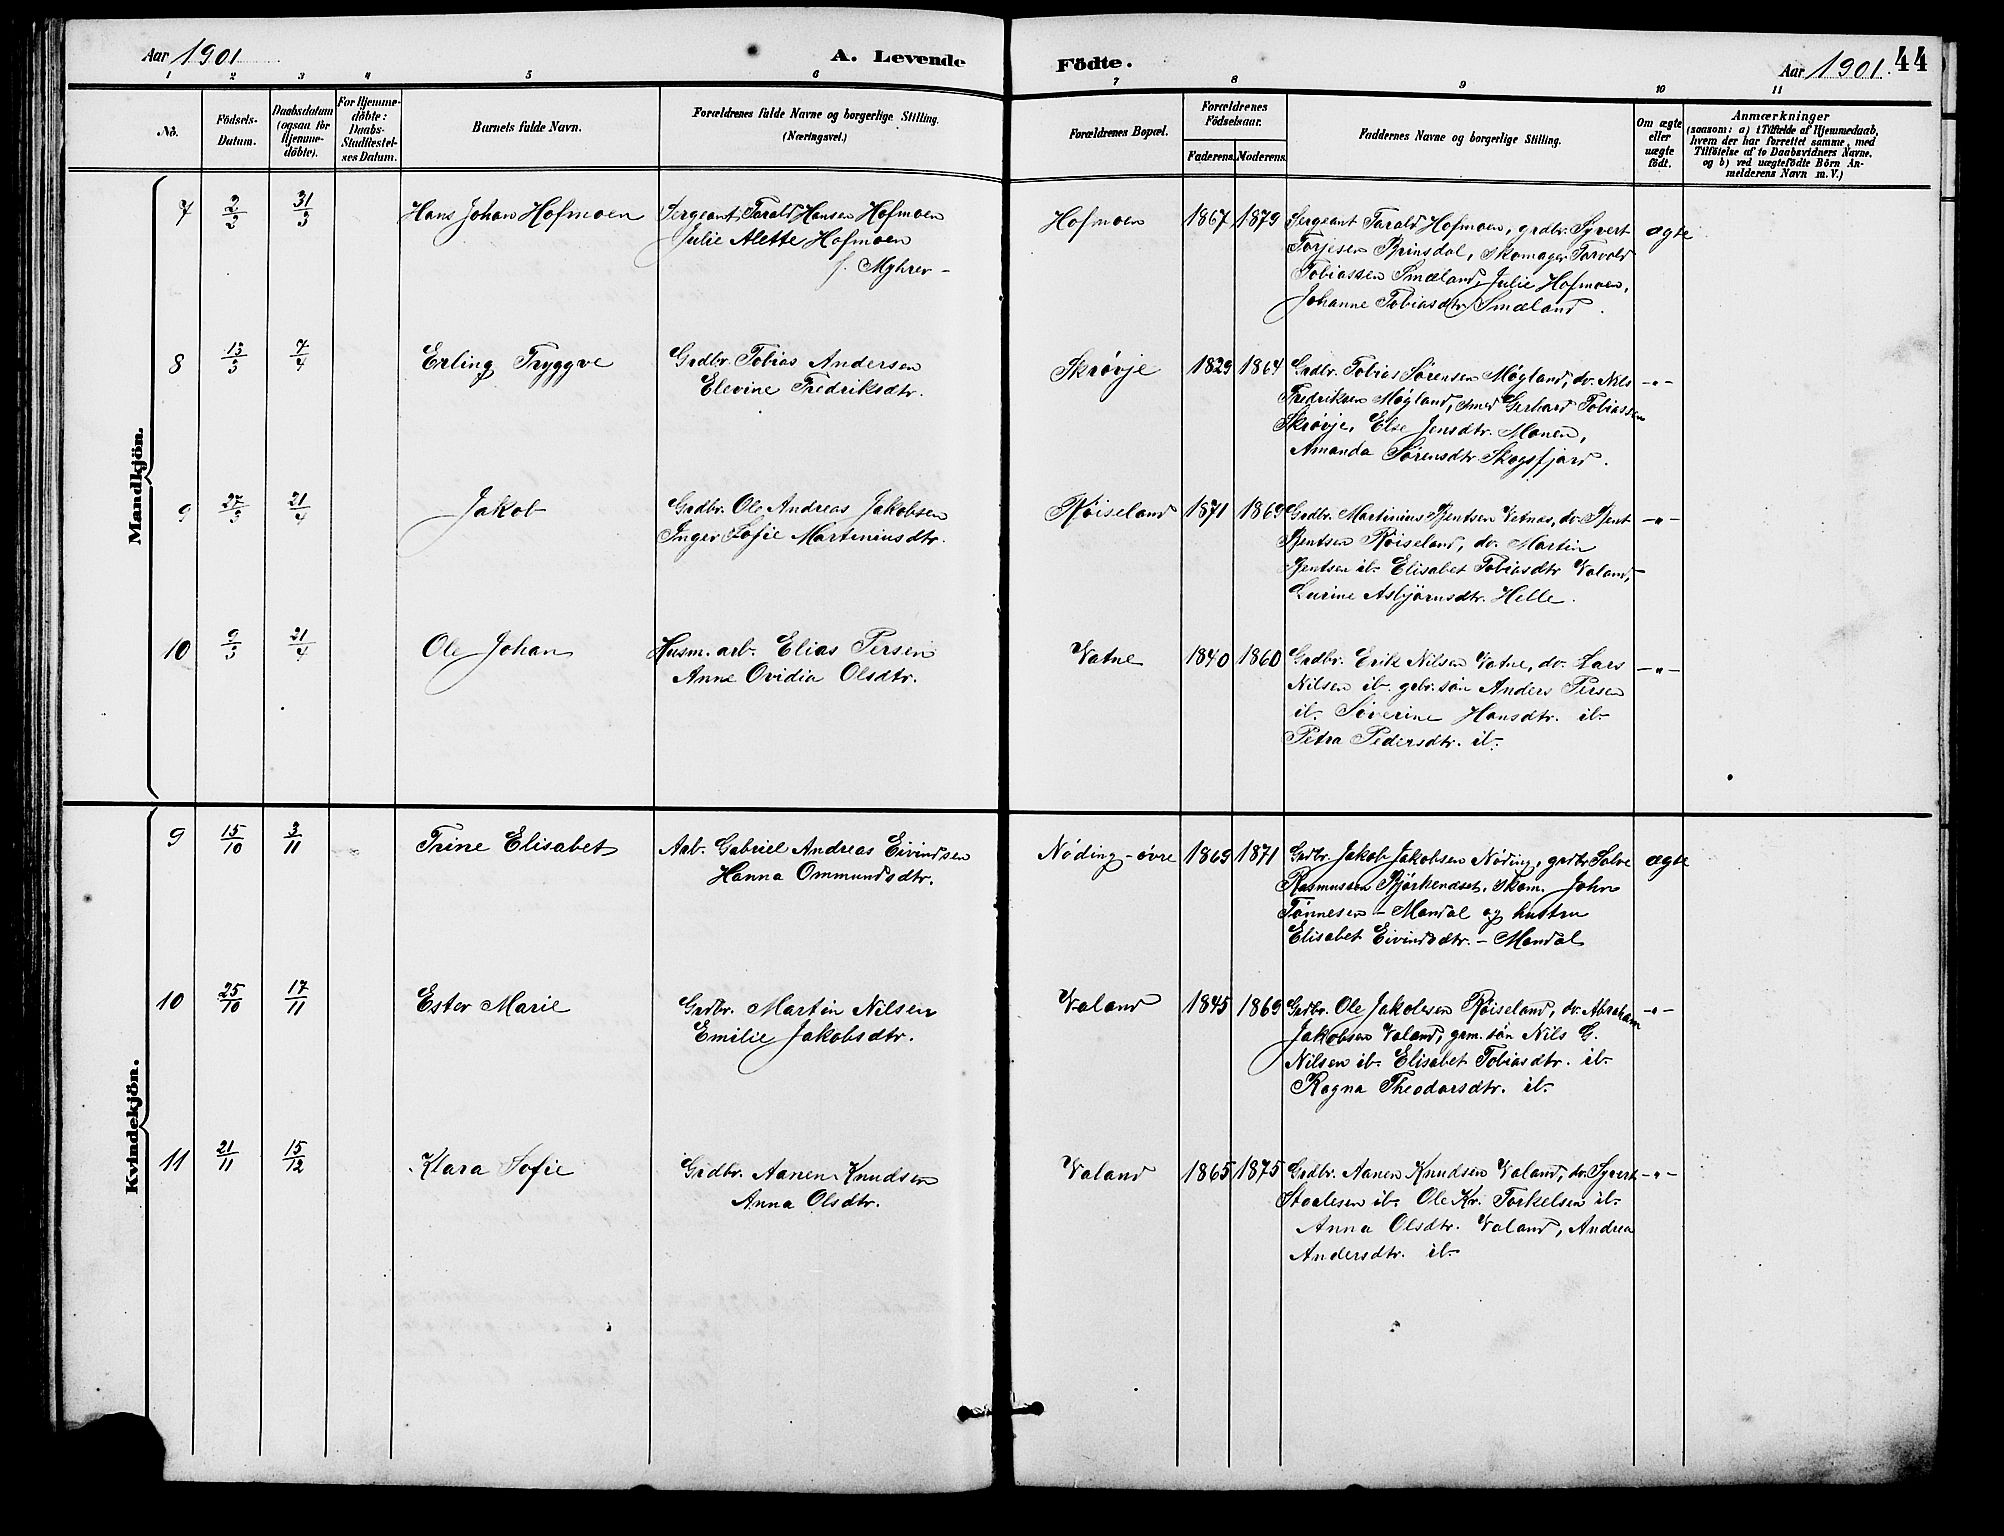 Aar 1901
A. Levende
Födte.
Aar 1901.
44
1 2 3 4 5 6 7 8 9 10 11
No.
Födsels-
Datum.
Daabsdatum
(ogsaa for
Hjemme-
döbte).
For Hjemme-
döbte:
Daabs-
Stadfæstel-
ses Datum.
Barnets fulde Navn.
Forældrenes fulde Navne og borgerlige Stilling.
(Næringsvei.)
Forældrenes Bopæl.
Forældrenes
Födselsaar.
Faderens. Moderens.
Faddernes Navne og borgerlige Stilling.
Om ægte
eller
uægte
født.
Anmærkninger
(saasom: a) i Tilfælde af Hjemmedaab,
hvem der har forrettet samme, med
Tilföielse af to Daabsvidners Navne,
og b) ved uægtefödte Börn An-
melderens Navn m. V.)
Mandkjön.
7 2/2 31/3 Hans Johan Hofmoen
Sergeant Tarald Hansen Hofmoen
Julie Alette Hofmoen
f. Myhrer -
Hofmoen 1867 1879
Sergeant Tarald Hofmoen, grdbr. Syvert
Torjesen Brinsdal, Skomager Torvald
Tobiassen Smæland, Julie Hofmoen,
Johanne Tobiasdtr. Smæland.
ægte
8 13/3 7/4 Erling Tryggve
Grdbr. Tobias Andersen
Elevine Fredriksdtr.
Skrøvje 1829 1864
Grdbr. Tobias Sörensen Møgland, do. Nils
Fredriksen Møgland, smed Gerhard Tobiassen
Skrøvje, Else Jensdtr. Monen,
Amanda Sörensdtr. Skogsfjord.
-"-
9 27/3 21/4 Jakob
Grdbr. Ole Andreas Jakobsen
Inger Sofie Martiniusdtr.
Røiseland 1871 1869
Grdbr. Martinius Bentsen Vatnas, do. Bent
Bentsen Røiseland, do. Martin
Bentsen ib. Elisabet Tobiasdtr Valand,
Lurine Asbjørnsdtr. Helle.
-"-
10 9/3 21/4 Ole Johan
Husm. arb. Elias Persen
Anne Ovidia Olsdtr.
Vatne 1840 1860
Grdbr. Erik Nilsen Vatne, do. Lars
Nilsen ib. grbr. sön Anders Persen
ib. Siverine Hansdtr. ib.
Petra Pedersdtr. ib.
-"-
Kvindekjön.
9 15/10 3/11 Trine Elisabet
Arb. Gabriel Andreas Eivindsen
Hanna Ommundsdtr.
Nöding-övre 1869 1871
Grdbr. Jakob Jakobsen Nöding, grdbr Salve
Rasmussen Björkendset, skom. John
Tönnesen - Mandal og hustru
Elisabet Eivindsdtr. - Mandal
ægte
10 25/10 17/11 Ester Marie
Grdbr. Martin Nilsen
Emilie Jakobsdtr.
Valand 1845 1869
Grdbr. Ole Jakobsen Røiseland, do. Abraham
Jakobsen Valand, grm. sön Nils G.
Nilsen ib. Elisabet Tobiasdtr. ib.
Ragna Theodorsdtr. ib.
-"-
11 21/11 15/12 Klara Sofie
Grdbr. Aanen Knudsen
Anna Olsdtr.
Valand 1865 1875
Grdbr. Aanen Knudsen Valand, do. Syvert
Stoelesen ib. Ole Kr. Torkelsen ib.
Anna Olsdtr. Valand, Andrea
Andersdtr. ib.
-"-